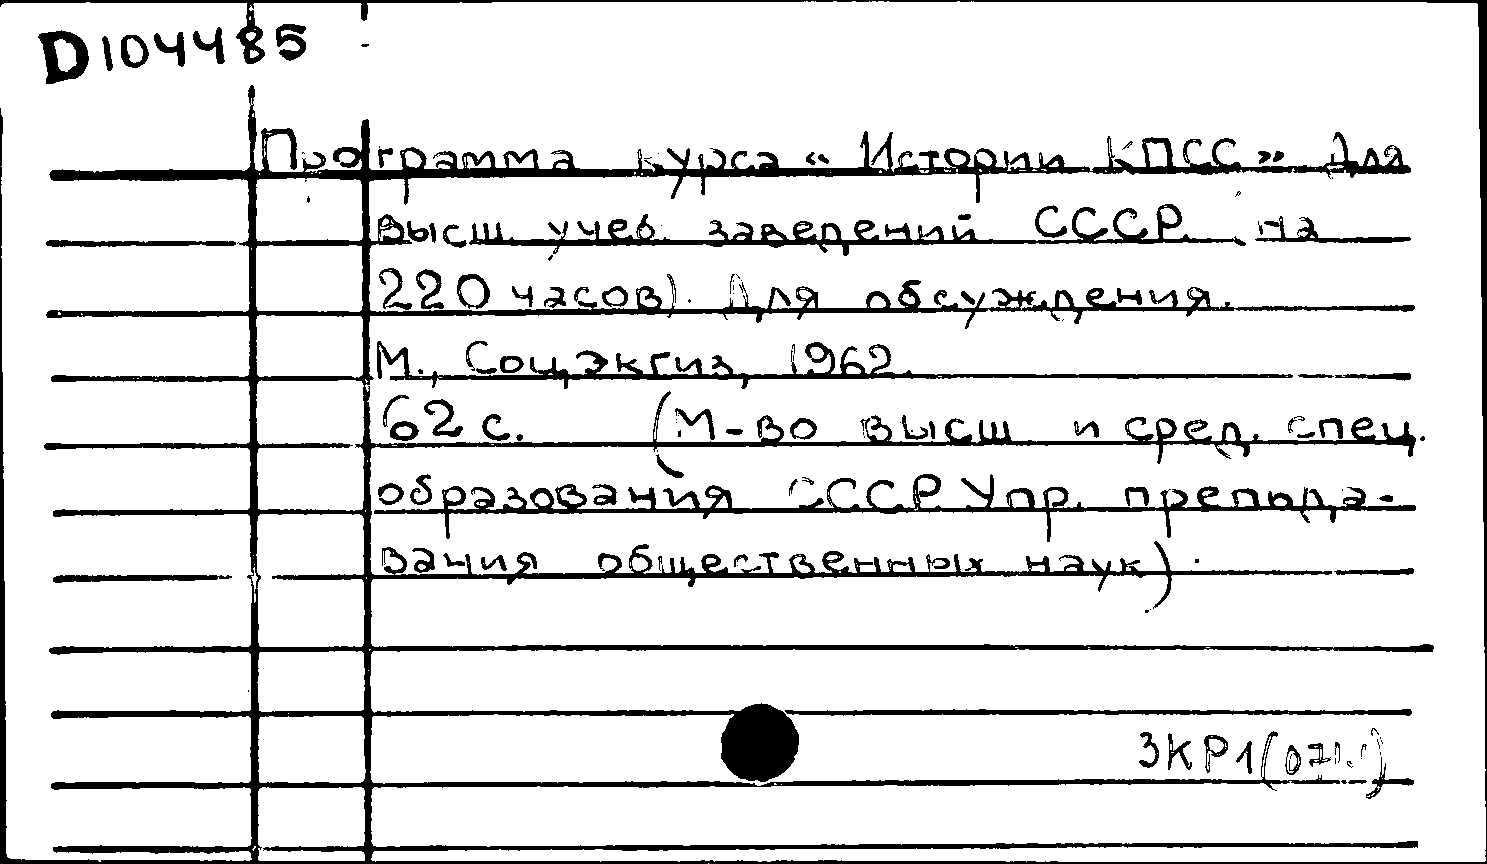 D104485
Программа курса « Истории КПСС» Для
высш. учеб. заведений СССР на
220 часов). Для обсуждения.
М., Соцэкгиз, 1962.
62 с. (М-во высш и сред. спец.
образования СССР. Упр. препода-
вания общественных наук).
3КР1